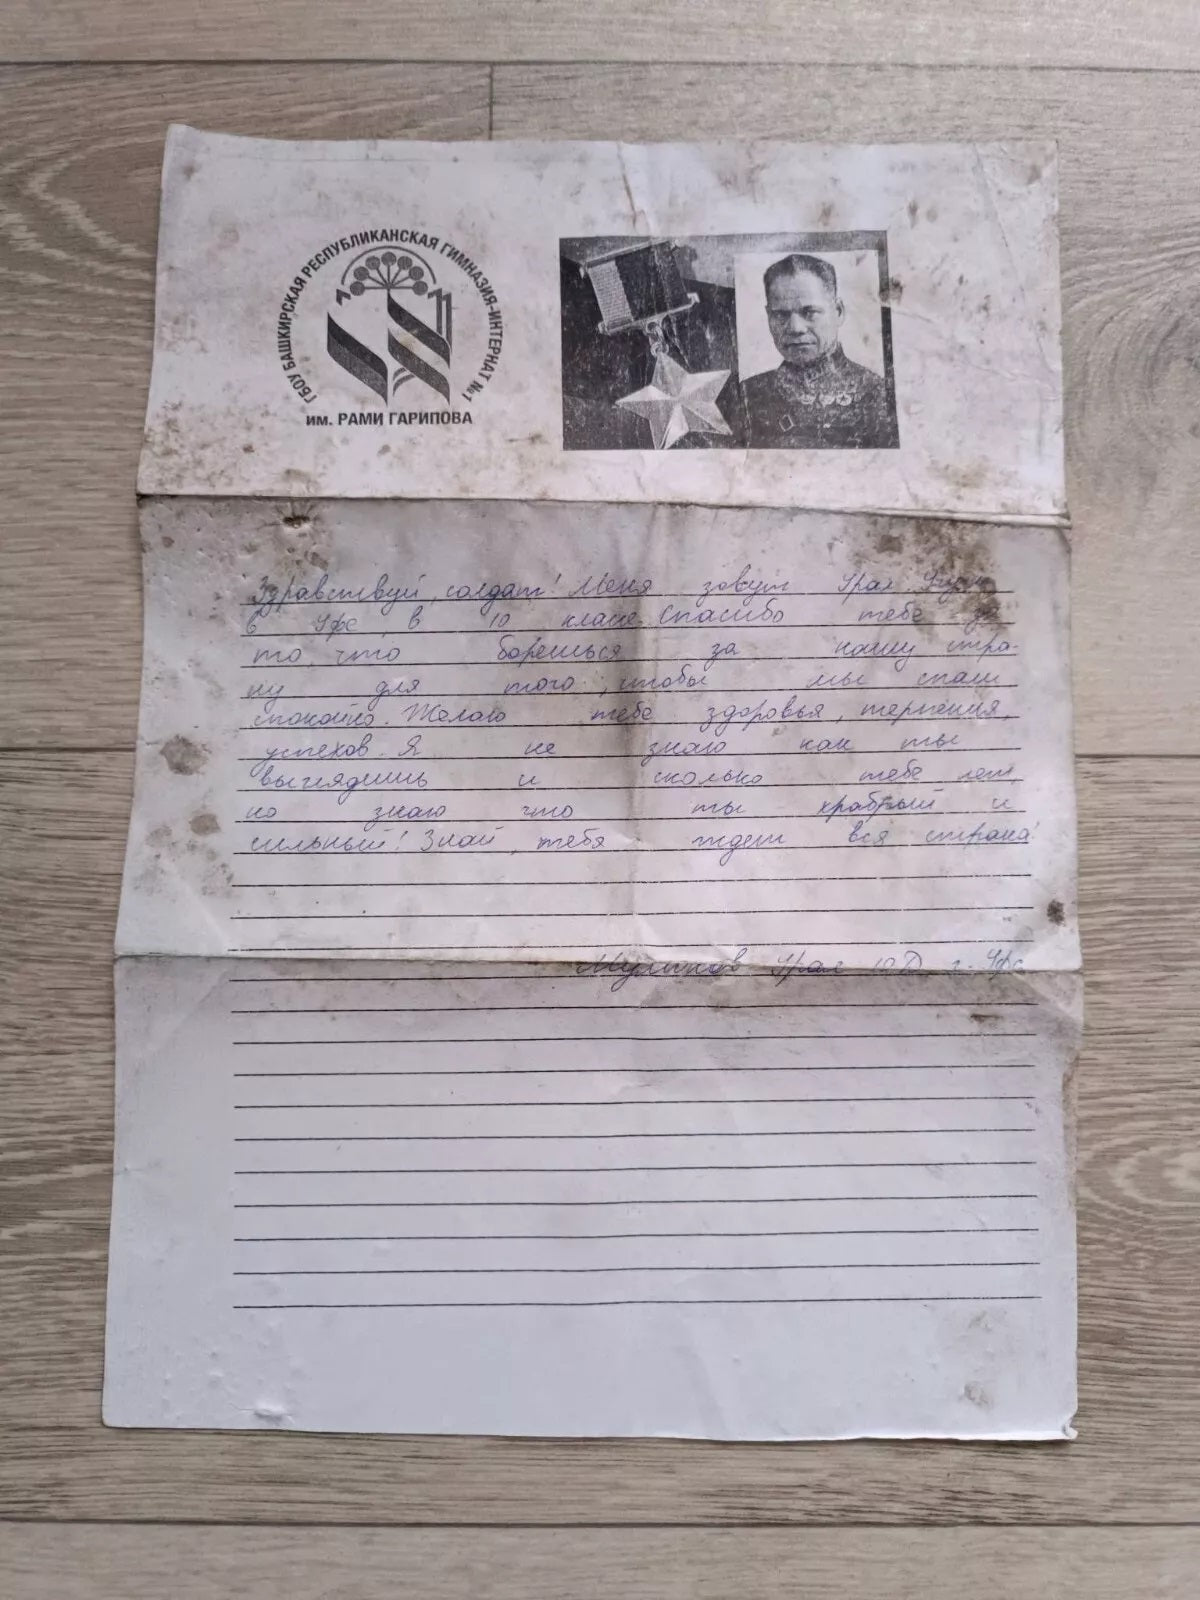 ГБОУ БАШКИРСКАЯ РЕСПУБЛИКАНСКАЯ ГИМНАЗИЯ-ИНТЕРНАТ №1
им. РАМИ ГАРИПОВА
Здравствуй, солдат! Меня зовут Урал. Учусь
в Уфе, в 10 классе. Спасибо тебе за
то, что борешься за нашу стра-
ну для того, чтобы мы спали
спокойно. Желаю тебе здоровья, терпения,
успехов. Я не знаю как ты
выглядишь и сколько тебе лет,
но знаю что ты храбрый и
сильный! Знай, тебя ждет вся страна!
Урал 10 г. Уфа